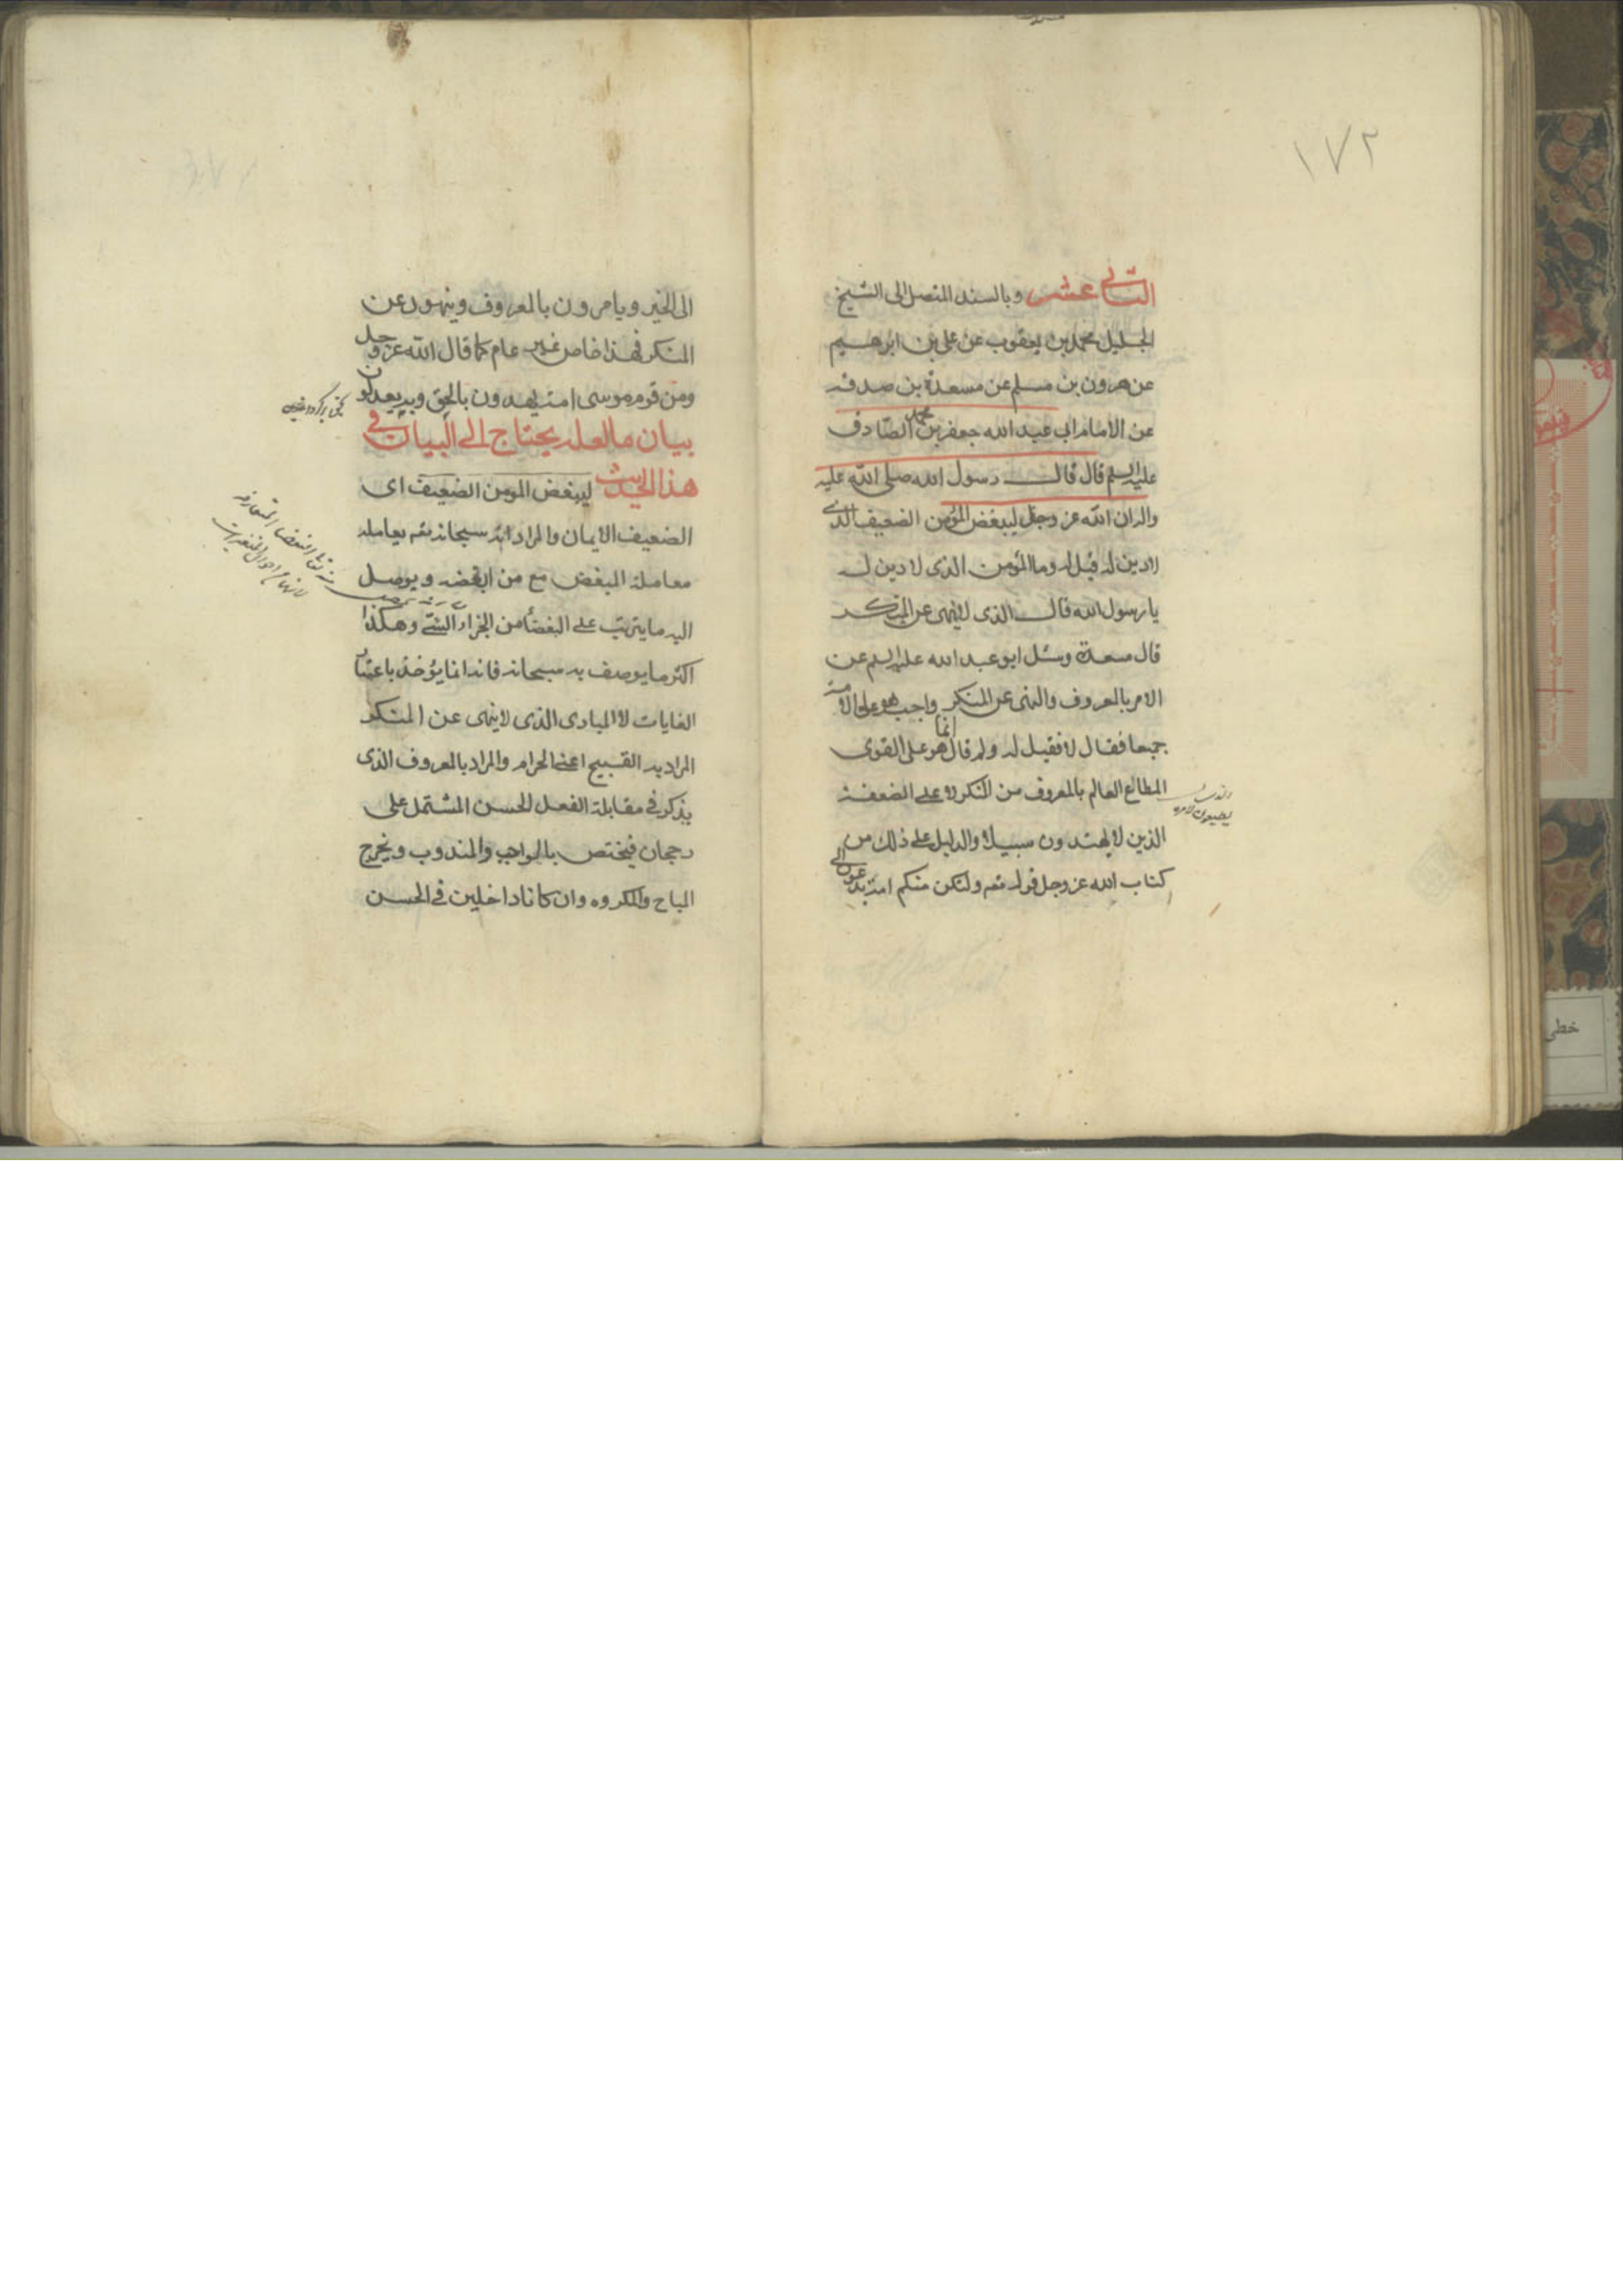 ١٧٢
الثاني عشر وبالسند المتصل الى الشيخ
الجليل محمد بن يعقوب عن علی بن ابرهيم
عن هرون بن مسلم عن مسعدة بن صدقه
عن الامام ابی عبد الله جعفر بن محمد الصادق
عليه السلم قال قال رسول الله صلى الله عليه
واله ان الله عز وجل ليبغض المؤمن الضعيف الذی
لا دين له فقيل له وما المؤمن الذی لا دين له
يا رسول الله قال الذی لا ينهی عن المنكر
قال مسعدة وسئل ابو عبد الله عليه السلم عن
الامر بالمعروف والنهی عن المنكر واجب هو علی الامة
جميعا فقال لا فقيل له ولم قال انما هو علی القوی
المطاع العالم بالمعروف من المنكر لا علی الضعفة
الذين لا يهتدون سبيلا والدليل علی ذلك من
كتاب الله عز وجل قوله تعم ولتكن منكم امة يدعون الی
الی الخير ويامرون بالمعروف وينهون عن
المنكر فهذا خاص غير عام كما قال الله عز وجل
ومن قوم موسی امة يهدون بالحق وبه يعدلون
بيان ما لعله يحتاج الی البيان فی
هذا الحديث ليبغض المومن الضعيف ای
الضعيف الايمان والمراد انه سبحانه تعم يعامله
معاملة المبغض مع من ابغضه ويوصل
اليه ما يترتب علی البغضأ من الجزاء السئ وهكذا
اكثر ما يوصف به سبحانه فانه انما يؤخذ باعتبار
الغايات لا المبادی الذی لا ينهی عن المنكر
المراد به القبيح اعنی الحرام والمراد بالمعروف الذی
يذكر فی مقابلة الفعل الحسن المشتمل علی
رجحان فيختص بالواجب والمندوب ويخرج
المباح والمكروه وان كانا داخلين فی الحسن
خطی